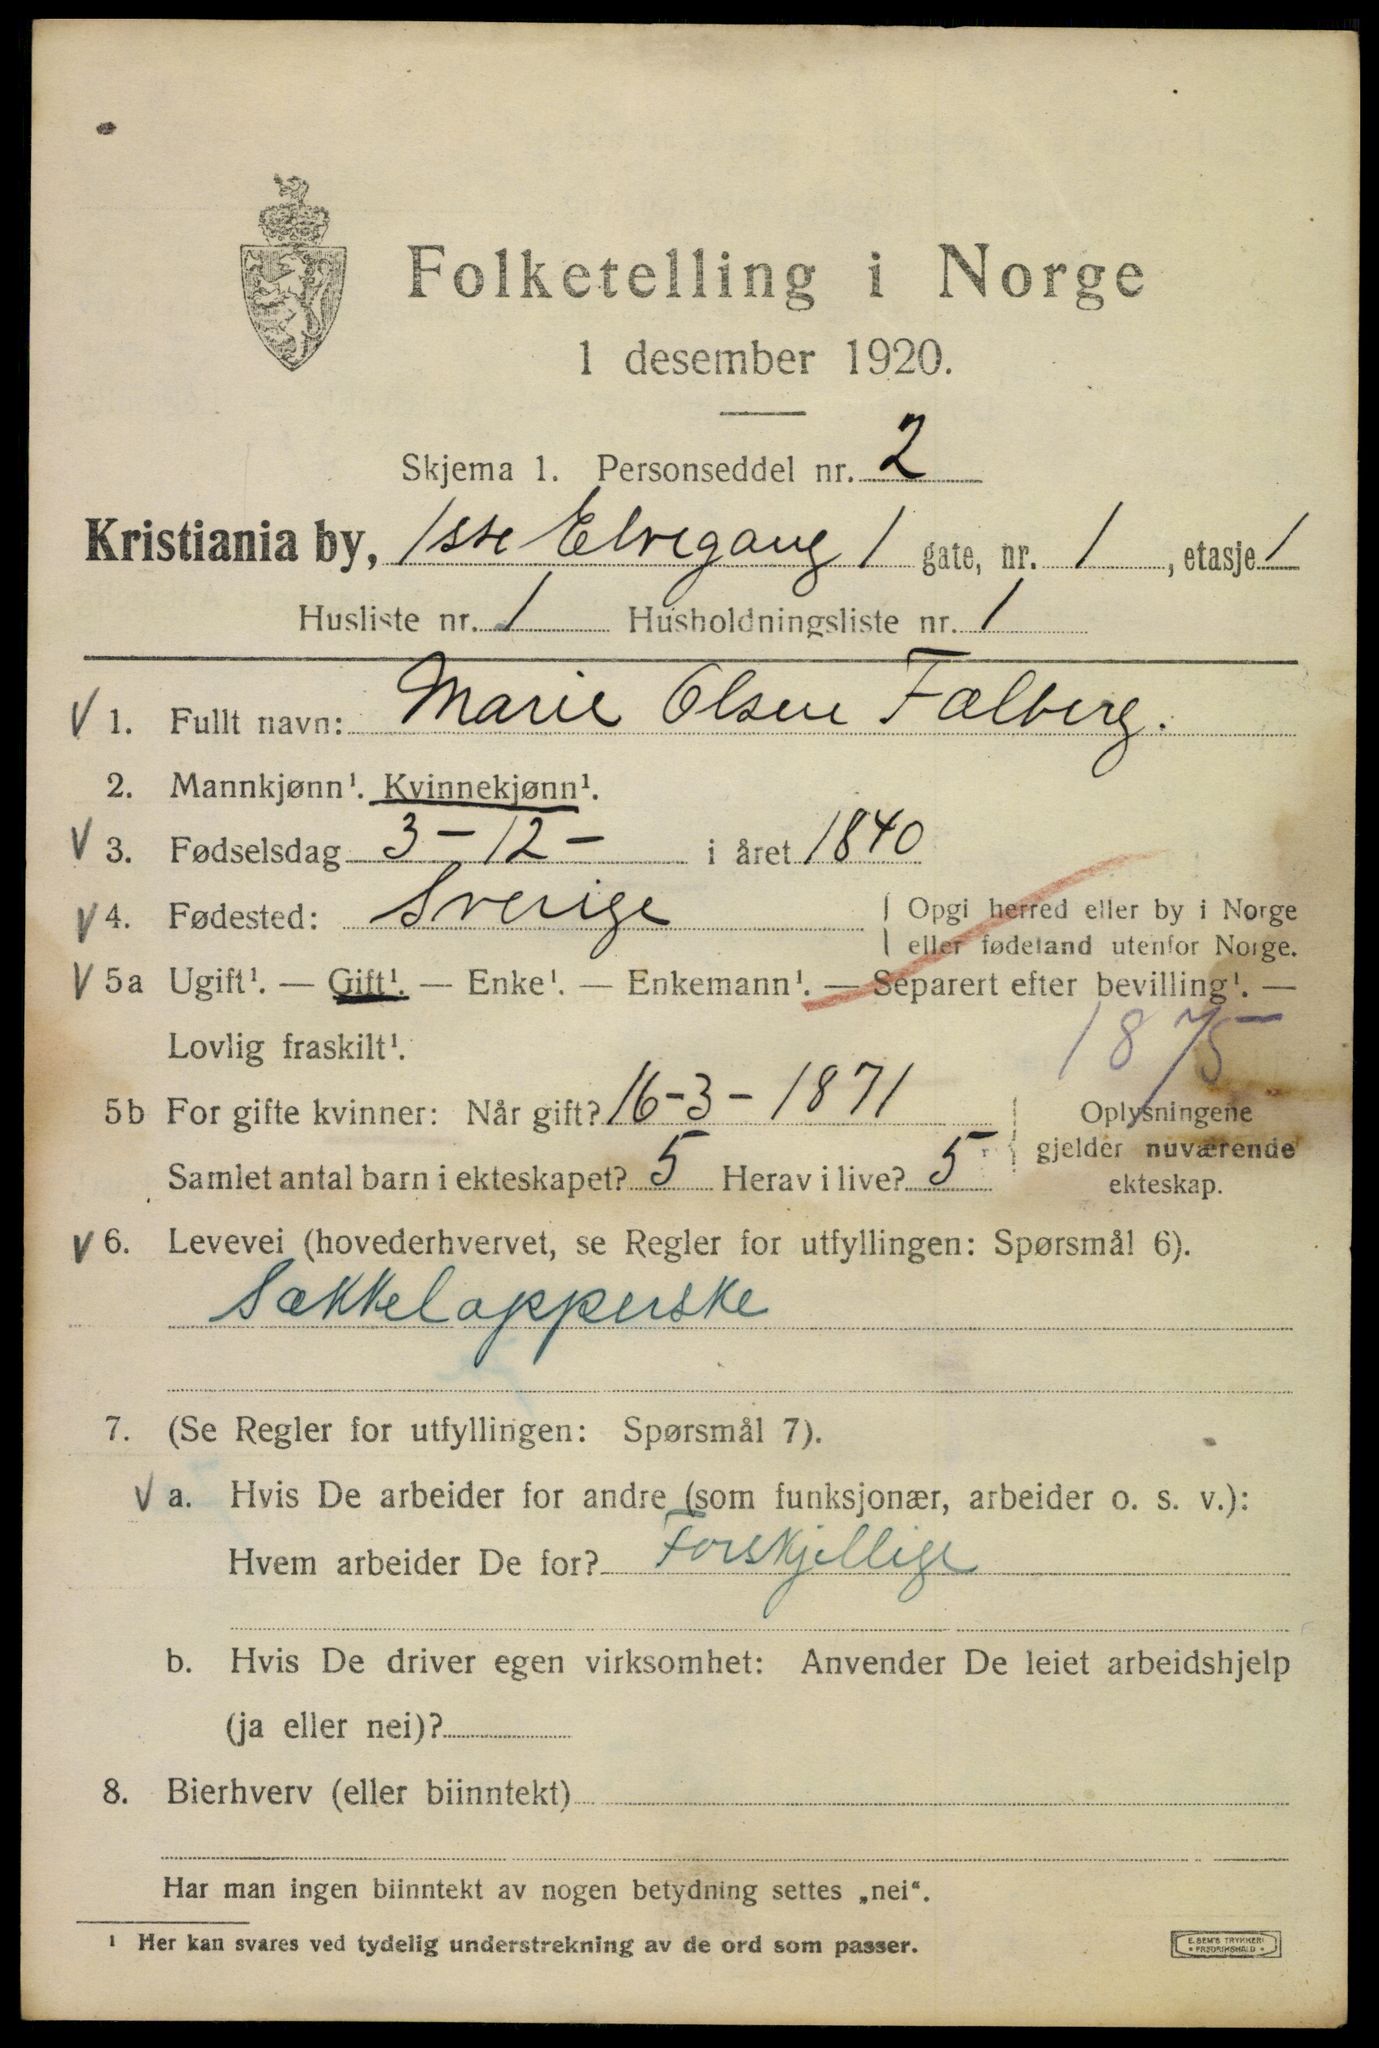 Folketelling i Norge
1 desember 1920.
Skjema 1. Personseddel nr. 2
Kristiania by, 1ste Elvegang 1 gate, nr. 1, etasje 1
Husliste nr. 1 Husholdningsliste nr. 1
V 1. Fullt navn: Marie Olsen Falberg.
2. Mannkjønn¹. Kvinnekjønn¹.
V 3. Fødselsdag 3-12- i året 1840
V 4. Fødested: Sverige { Opgi herred eller by i Norge
{ eller fødeland utenfor Norge.
V 5a Ugift¹. — Gift¹. — Enke¹. — Enkemann¹. — Separert efter bevilling¹. —
Lovlig fraskilt¹.
1875
5b For gifte kvinner: Når gift? 16-3-1871 { Oplysningene
gjelder nuværende
Samlet antal barn i ekteskapet? 5 Herav i live? 5 ekteskap.
V 6. Levevei (hovederhvervet, se Regler for utfyllingen: Spørsmål 6).
Sækkelapperske
7. (Se Regler for utfyllingen: Spørsmål 7).
V a. Hvis De arbeider for andre (som funksjonær, arbeider o. s. v.):
Hvem arbeider De for? Forskjellige
b. Hvis De driver egen virksomhet: Anvender De leiet arbeidshjelp
(ja eller nei)?
8. Bierhverv (eller biinntekt)
Har man ingen biinntekt av nogen betydning settes „nei“.
¹ Her kan svares ved tydelig understrekning av de ord som passer.
E. SEM'S TRYKKERI
• FREDRIKSHALD •